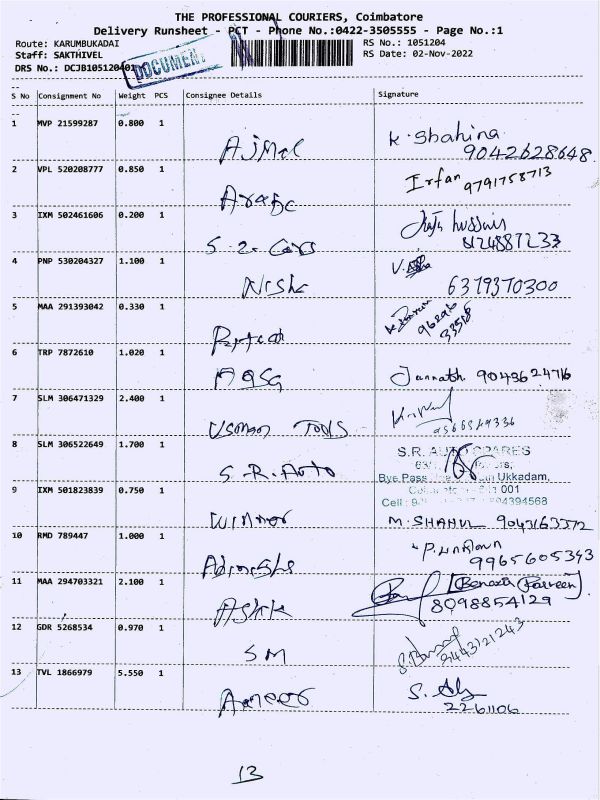 THE PROFESSIONAL COURIERS, Coimbatore
Delivery Runsheet - PCT - Phone No.:0422-3505555 - Page No.:1
Route: KARUMBUKADAI RS No.: 1051204
Staff: SAKTHIVEL RS Date: 02-Nov-2022
DRS No.: DCJB105120401
DOCUMENT
S No Consignment No Weight PCS Consignee Details Signature
1 MVP 21599287 0.800 1
Ajmal K. Shahina
9042628648
2 VPL 520208777 0.850 1
Irfan 9791758713
3 IXM 502461606 0.200 1
hussain
8124887233
4 PNP 530204327 1.100 1
Nisha 6379370300
5 MAA 291393042 0.330 1
6 TRP 7872610 1.020 1
Jannath 9043624716
7 SLM 306471329 2.400 1
Usman Tools
9566549336
8 SLM 306522649 1.700 1
S.R. Auto S.R. AUTO SPARES
Bye Pass Ukkadam,
001
Cell : 94394568
9 IXM 501823839 0.750 1
Winner M. SHAHUL 9043163372
10 RMD 789447 1.000 1
9965605343
11 MAA 294703321 2.100 1
8098854129
12 GDR 5268534 0.970 1
SM 9443121243
13 TVL 1866979 5.550 1
Ameer S.
2261106
13